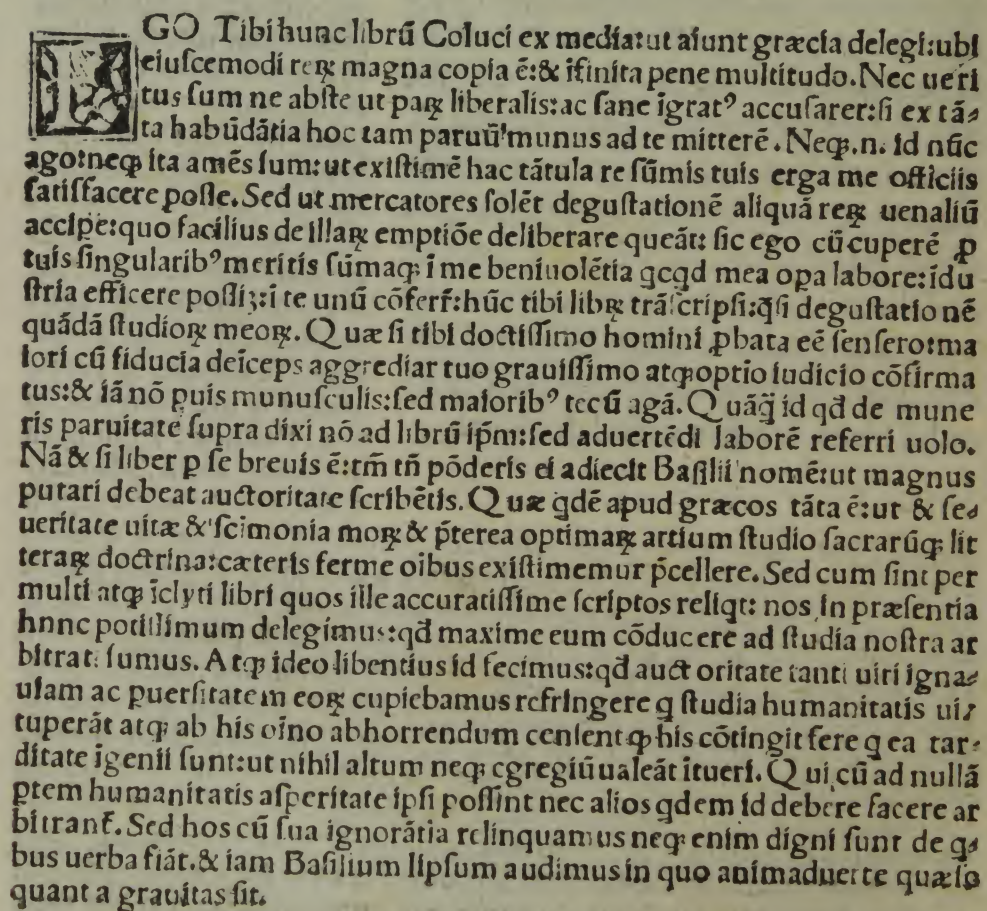 EGO Tibi hunc librū Coluci ex media:ut aiunt græcia delegi:ubi
eiuſcemodi reꝝ magna copia ē:& ifinita pene multitudo.Nec ueri
tus ſum ne abſte ut paꝝ liberalis:ac ſane īgratꝰ accuſarer:ſi ex tā⸗
ta habūdātia hoc tam paruū munus ad te mitterē.Neqꝫ.n. id nūc
ago:neqꝫ ita amēs ſum:ut exiſtimē hac tātula re ſūmis tuis erga me officiis
ſatiſfacere poſſe.Sed ut mercatores ſolēt deguſtationē aliquā reꝝ uenaliū
accipe:quo facilius de illaꝝ emptiōe deliberare queāt: ſic ego cū cuperē ꝓ
tuis ſingularibꝰ meritis ſūmaqꝫ i me beniuolētia qcqd mea opa labore:idu
ſtria efficere poſſiꝫ:i te unū cōferr̄:hūc tibi libꝝ trāſcripſi:q̄ſi deguſtationē
quādā ſtudioꝝ meoꝝ.Quæ ſi tibi doctiſſimo homini ꝓbata eē ſenſero:ma
iori cū fiducia deīceps aggrediar tuo grauiſſimo atqꝫ optīo iudicio cōfirma
tus:& iā nō puis munuſculis:ſed maioribꝰ tecū agā.Quāq̄ id qd̄ de mune
ris paruitate ſupra dixi nō ad librū ip̄m:ſed aduertēdi laborē referri uolo.
Nā & ſi liber p ſe breuis ē:tm̄ tn̄ pōderis ei adiecit Baſilii nomē:ut magnus
putari debeat auctoritate ſcribētis.Quæ qdē apud græcos tāta ē:ut & ſe⸗
ueritate uitæ & ſcimonia moꝝ & p̄terea optimaꝝ artium ſtudio ſacrarūqꝫ lit
teraꝝ doctrina:cæteris ferme oibus exiſtimemur p̄cellere.Sed cum ſint per
multi atqꝫ īclyti libri quos ille accuratiſſime ſcriptos reliqt: nos in præſentia
hnnc potiſſimum delegimus:qd̄ maxime eum cōducere ad ſtudia noſtra ar
bitrati ſumus.Atqꝫ ideo libentius id fecimus:qd̄ auctoritate tanti uiri igna⸗
uiam ac puerſitatem eoꝝ cupiebamus refringere q ſtudia humanitatis ui⸗
tuperāt atqꝫ ab his oīno abhorrendum cenſent ꝙ his cōtingit fere q ea tar⸗
ditate igenii ſunt:ut nihil altum neqꝫ egregiū ualeāt ītueri.Qui cū ad nullā
ptem humanitatis aſperitate ipſi poſſint nec alios qdem id debere facere ar
bitrant̄.Sed hos cū ſua ignorātia relinquamus neqꝫ enim digni ſunt de q⸗
bus uerba fiāt.& iam Baſilium lipſum audimus in quo animaduerte quæſo
quant a grauitas ſit.